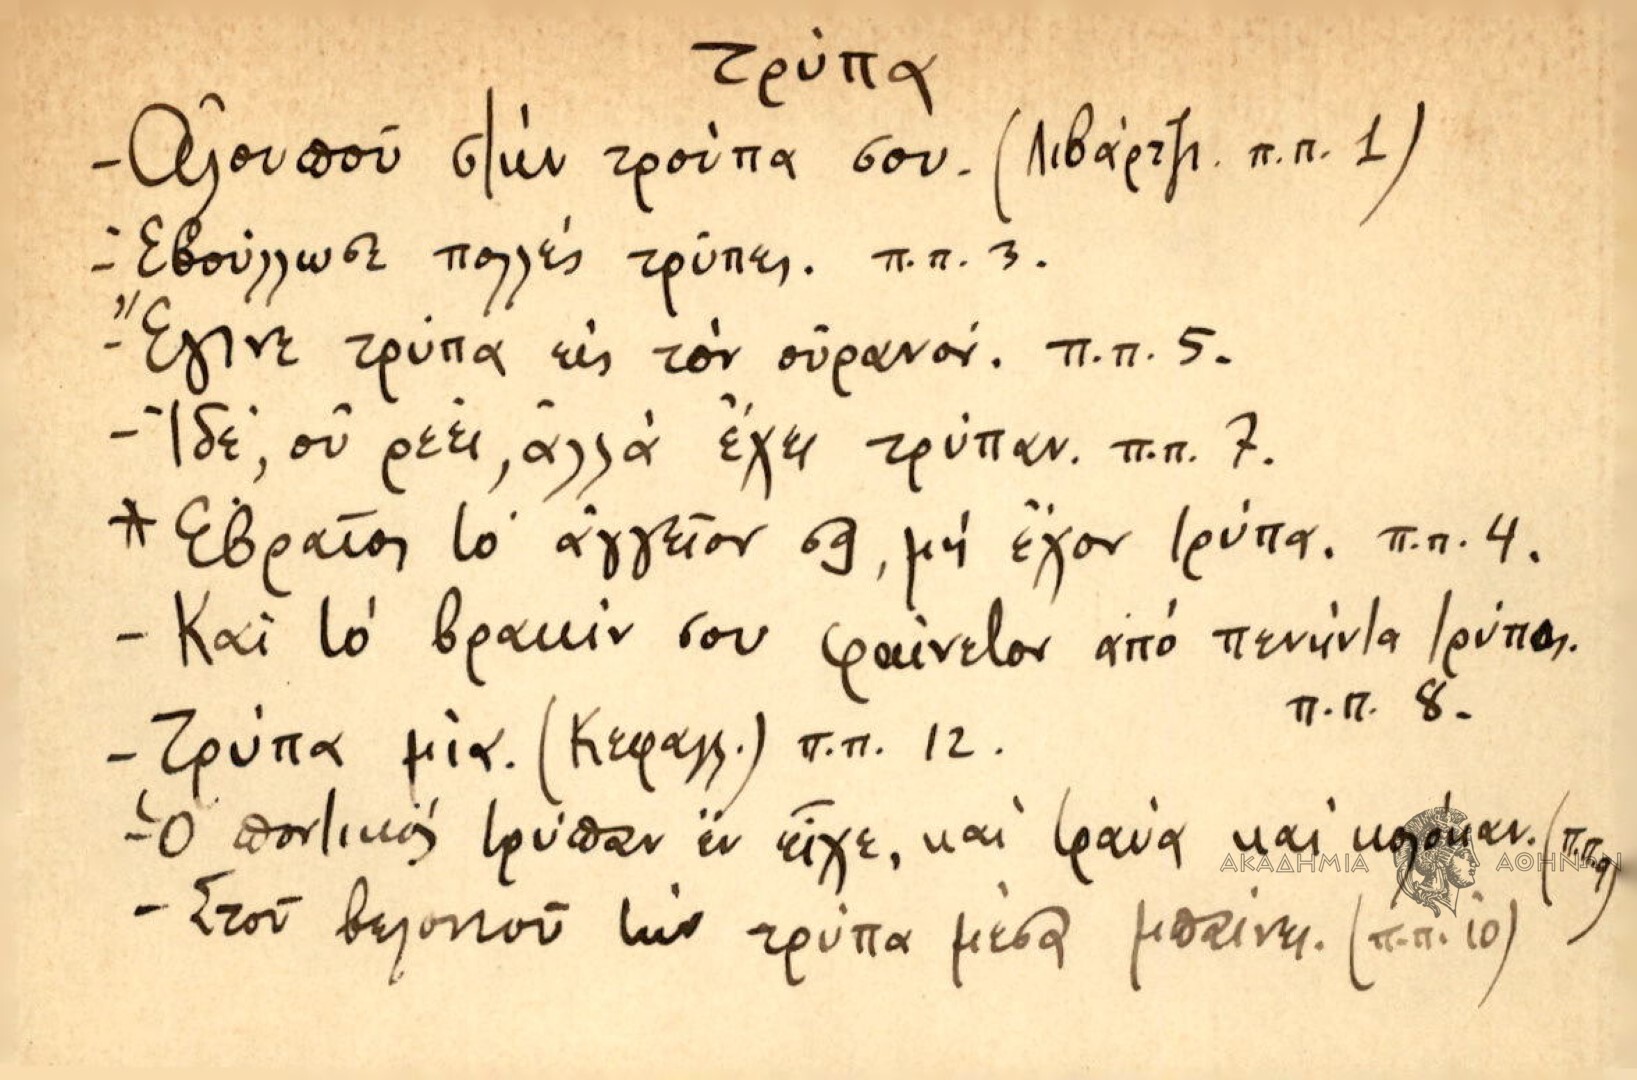 τρύπα
- Ἀλουποῦ στὴν τρούπα σου. (Λιβάρτζι. π.π. 1)
- Ἐβούλλωσε πολλὲς τρύπες. π.π. 3.
- Ἔγινε τρύπα εἰς τὸν οὐρανόν. π.π. 5.
- Ἰδέ, οὐ ρέει, ἀλλὰ ἔχει τρύπαν. π.π. 7.
* Ἑβραῖος τὸ ἀγγεῖον, μὴ ἔχον τρύπα. π.π. 4.
- Καὶ τὸ βρακίν σου φαίνετον ἀπὸ πενήντα τρύπας.
π.π. 8.
- Τρύπα μία. (Κεφαλλ.) π.π. 12.
- Ὁ ποντικὸς τρύπαν ἐν εἶχε, καὶ τραύα καὶ κολόκαν. (π.π. 9)
- Στοῦ βελονιοῦ τὴν τρύπα μέσα μπαίνει. (π.π. 10)
ΑΚΑΔΗΜΙΑ ΑΘΗΝΩΝ